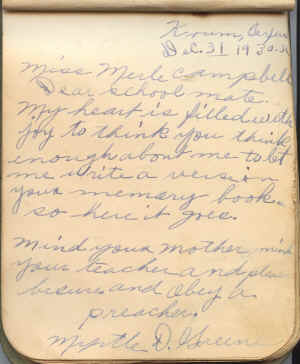 Krum, Texas
Dec. 31 1930
Miss Merle Campbell
Dear school mate.
My heart is filled with
joy to think you think
enough about me to let
me write a verse in
your memory book.
so here it goes.
Mind your mother, mind
your teacher and please
be sure and obey a
preacher.
Myrtle D. Greene